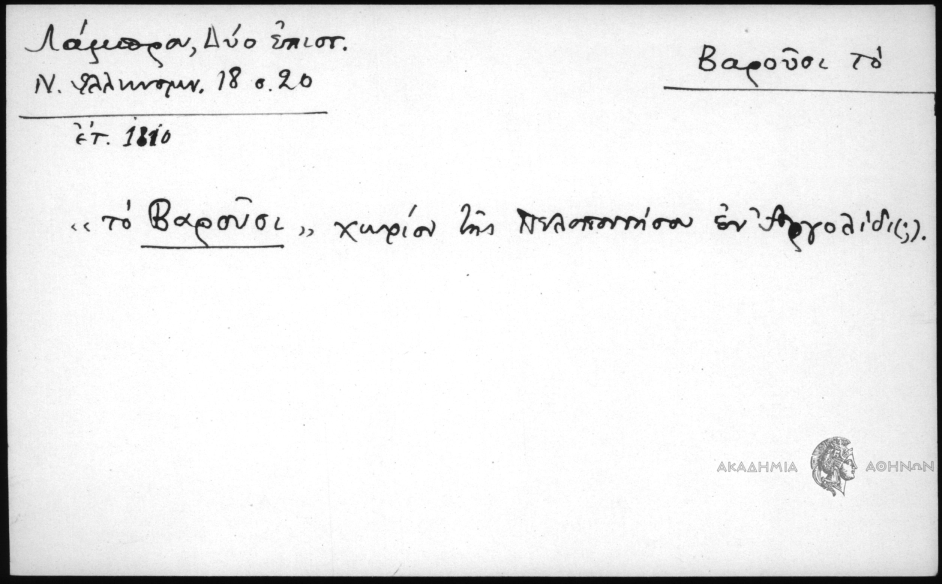 Λάμπρου, Δύο ἐπιστ.
Ν. Ἑλληνομν. 18 σ. 20
ἐτ. 1810
Βαροῦσι τό
"τό Βαροῦσι„ χωρίον τῆς Πελοποννήσου ἐν Ἀργολίδι(;).
ΑΚΑΔΗΜΙΑ ΑΘΗΝΩΝ